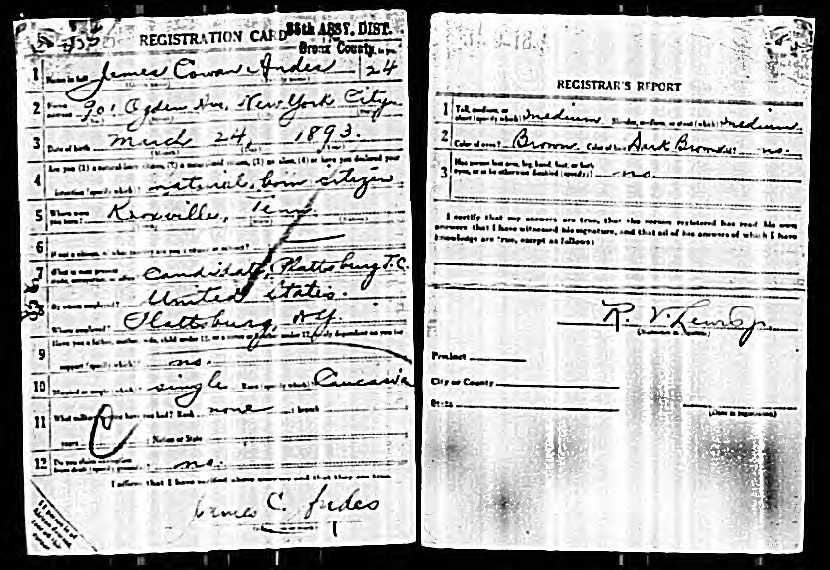 REGISTRATION CARD
35th ASSY. DIST.
Bronx County
1 Name in full James Cowan 24
2 Home address 901 Ogden Ave, New York City
3 Date of birth March 24, 1893.
Are you (1) a natural-born citizen, (2) a naturalized citizen, (3) an alien, (4) or have you declared your
4 intention (specify which)? natural born citizen
5 Where were you born? Knoxville, Tenn
6 If not a citizen, of what country are you a citizen or subject?
7 What is your present trade, occupation, or office? Candidate, Plattsburg T.C.
8 By whom employed? United States.
Where employed? Plattsburg, N.Y.
9 Have you a father, mother, wife, child under 12, or a sister or brother under 12, solely dependent on you for
support (specify which)? no.
10 Married or single (which)? single Race (specify which)? Caucasian
11 What military service have you had? Rank none branch
years Nation or State
12 Do you claim exemption from draft (specify grounds)? no.
I affirm that I have verified above answers and that they are true.
James C.
REGISTRAR'S REPORT
1 Tall, medium, or short (specify which)? medium Slender, medium, or stout (which)? medium
2 Color of eyes? Brown Color of hair? Dark Brown Bald? no.
3 Has person lost arm, leg, hand, foot, or both eyes, or is he otherwise disabled (specify)? no
I certify that my answers are true, that the person registered has read his own
answers that I have witnessed his signature, and that all of his answers of which I have
knowledge are true, except as follows:
R. V. Lewis Jr.
(Signature of registrar)
Precinct
City or County
State
(Date of registration)